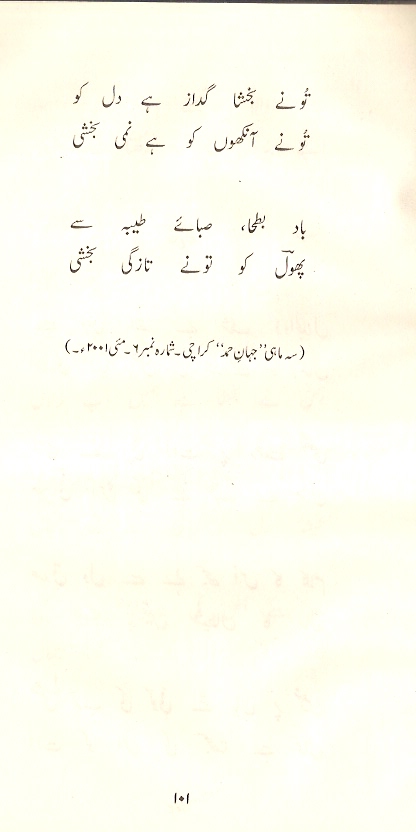 تُو نے بخشا گداز ہے دل کو
تُو نے آنکھوں کو ہے نمی بخشی
باد بطحا، صبائے طیبہ سے
پھولؔ کو تو نے تازگی بخشی
(سہ ماہی ”جہانِ حمد“ کراچی۔ شمارہ نمبر ۶۔ مئی ۲۰۰۱ء۔)
۱۰۱